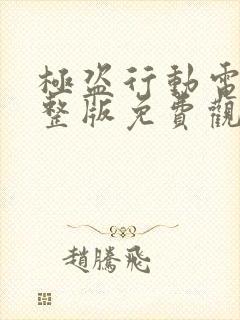 極盜行動電
整版免費觀
趙騰飛